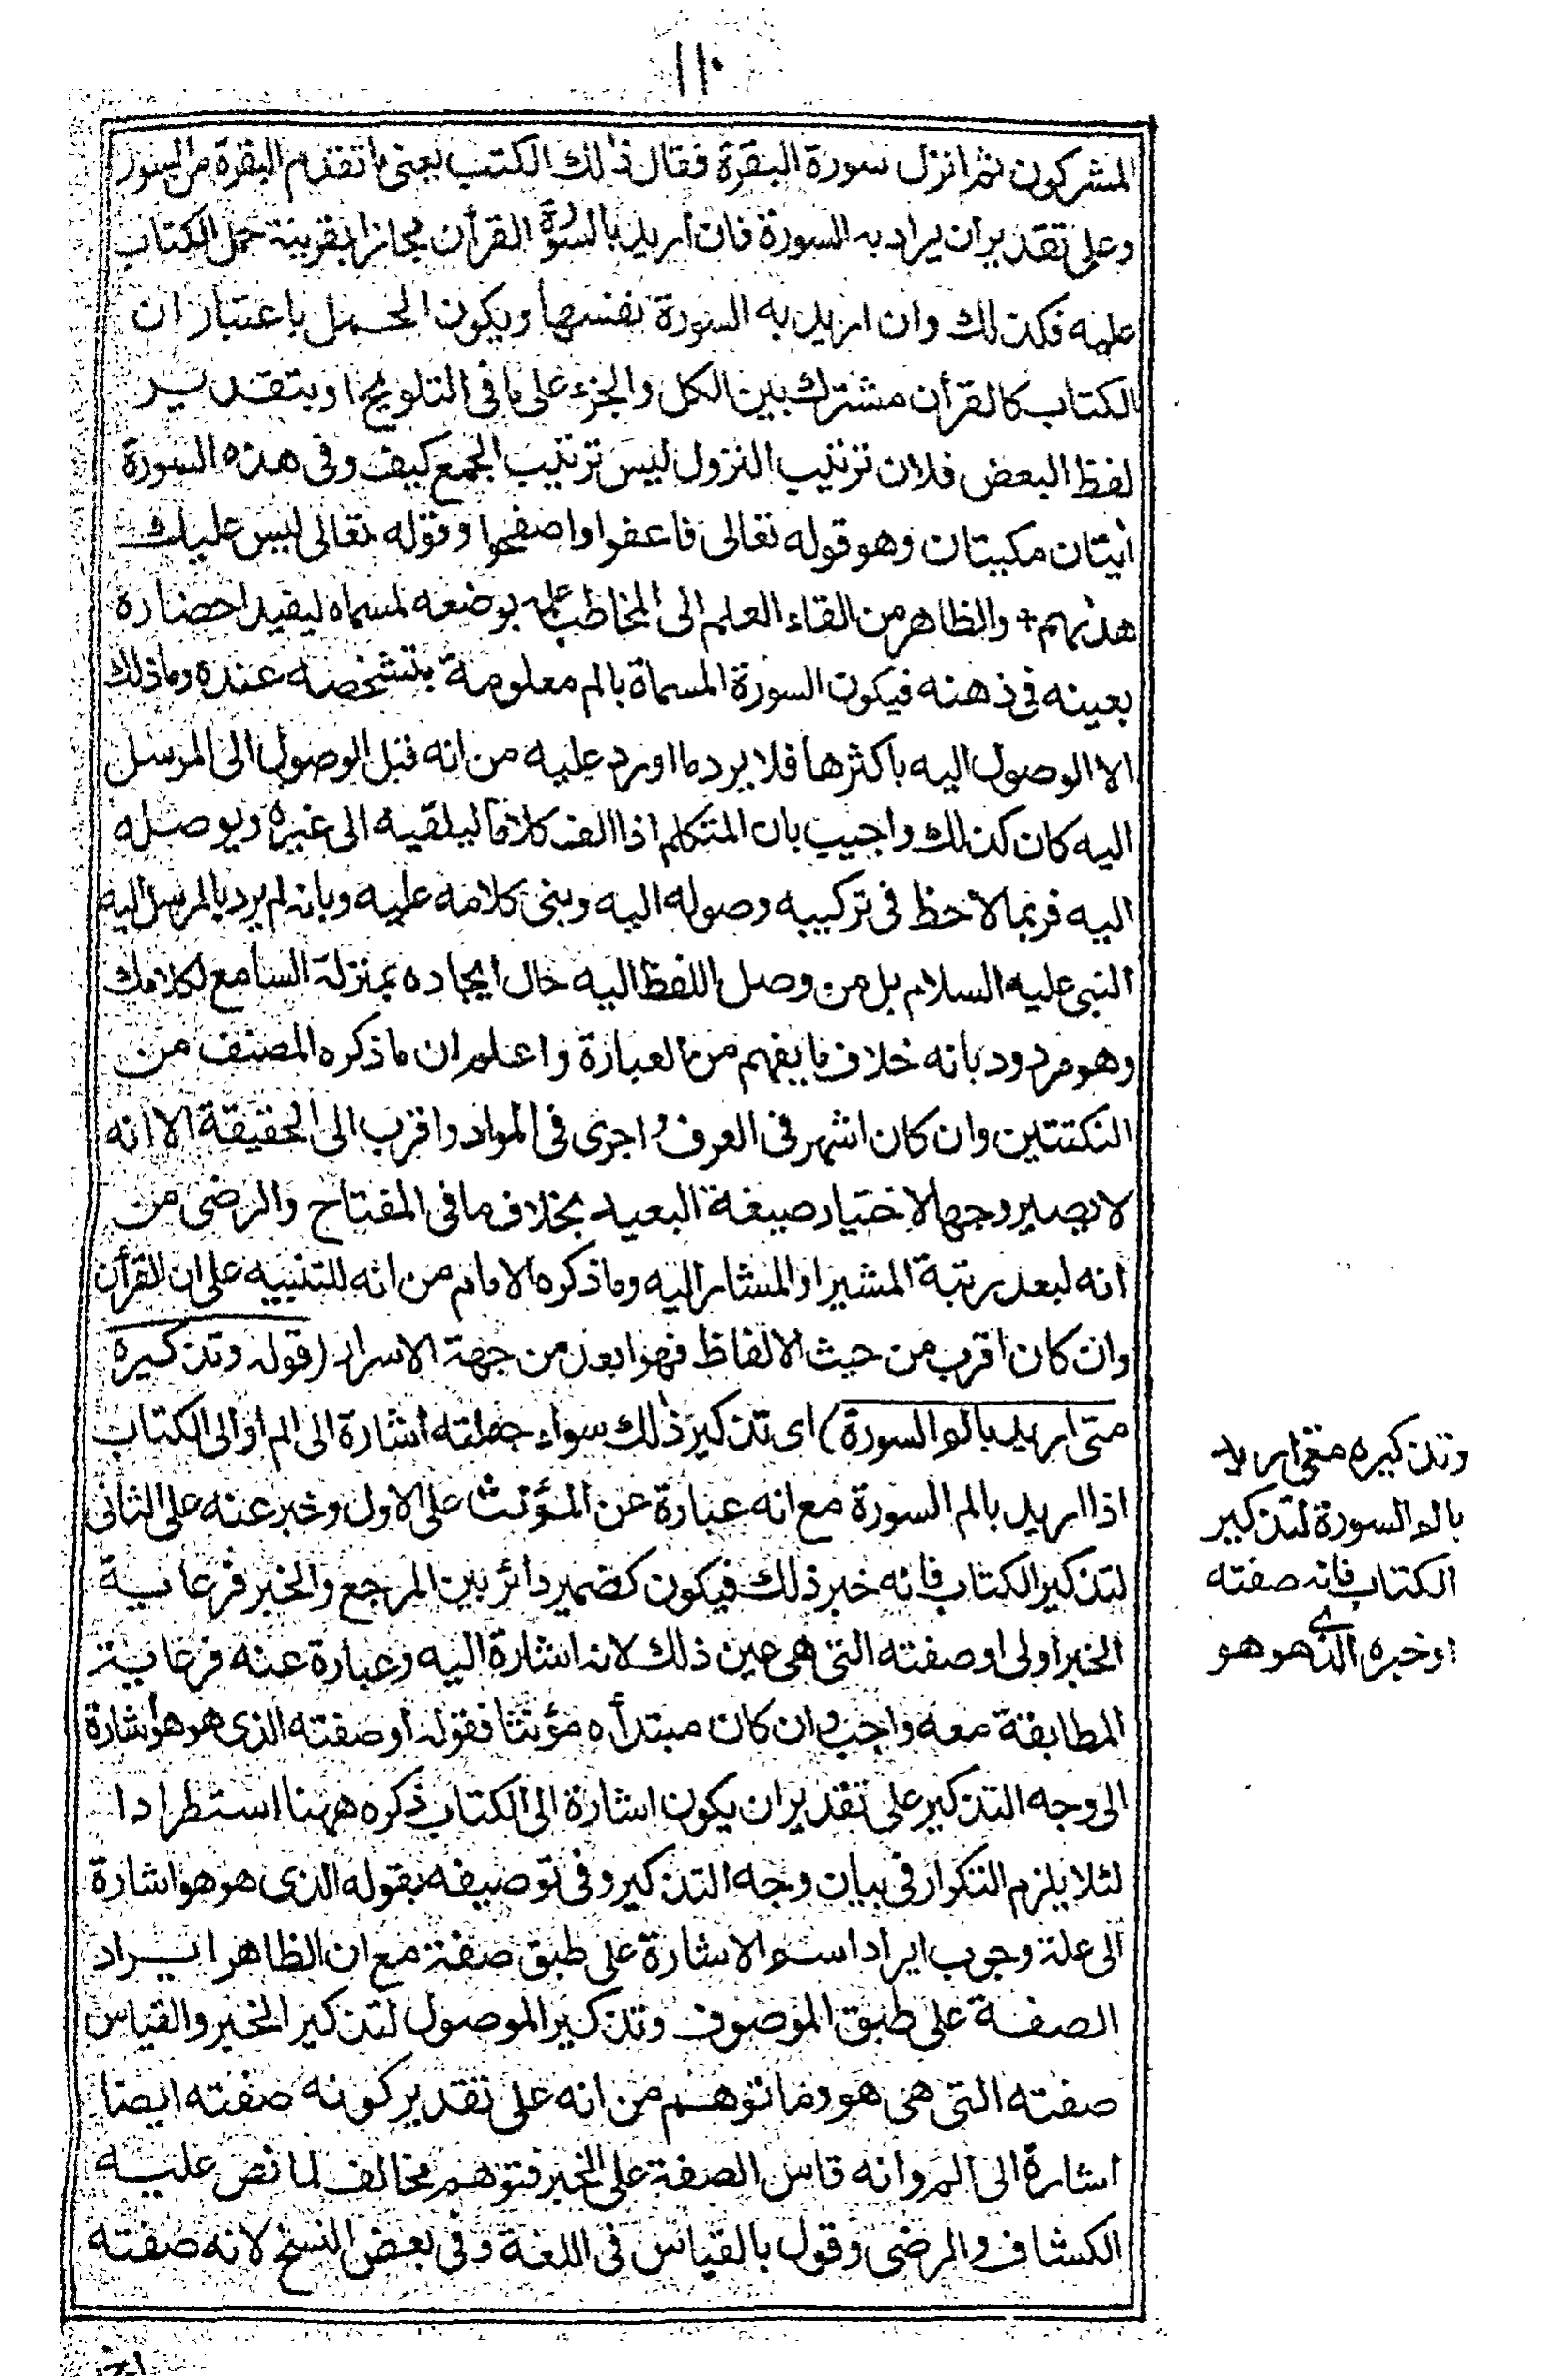 ١١٠
المشركون ثم انزل سورة البقرة فقال ذلك الكتب يعنى ما تقدم البقرة من السور
وعلى تقدير ان يراد به السورة فان اريد بالسورة القرأن مجازا بقرينة حمل الكتاب
عليه فكذلك وان اريد به السورة نفسها ويكون الحمل باعتبار ان
الكتاب كالقرأن مشترك بين الكل والجزء على ما فى التلويح او بتقدير
لفظ البعض فلان ترتيب النزول ليس ترتيب الجمع كيف وفى هذه السورة
أيتان مكيتان وهو قوله تعالى فاعفوا واصفحوا وقوله تعالى ليس عليك
هدٰىهم + والظاهر من القاء العلم الى المخاطب علمه بوضعه لمسماه ليفيد احضاره
بعينه فى ذهنه فيكون السورة المسماة بالم معلومة بتشخصه عنده وما ذلك
الا الوصول اليه باكثرها فلا يرد ما اورد عليه من انه قبل الوصول الى المرسل
اليه كان كذلك واجيب بان المتكلم اذا الف كلاما ليلقيه الى غيره ويوصله
اليه فربما لاحظ فى تركيبه وصوله اليه وبنى كلامه عليه وبانه لم يرد بالمرسل اليه
النبى عليه السلام بل من وصل اللفظ اليه حال ايجاده بمنزلة السامع لكلامك
وهو مردود بانه خلاف ما يفهم من العبارة واعلم ان ما ذكره المصنف من
النكتتين وان كان اشهر فى العرف واجرى فى المواد واقرب الى الحقيقة الا انه
لا يصير وجها لاختيار صيغة البعيد بخلاف ما فى المفتاح والرضى من
أنه لبعد رتبة المشير او المشار اليه وما ذكره الامام من انه للتنبيه على ان القرأن
وان كان اقرب من حيث الالفاظ فهو ابعد من جهة الاسرار (قوله وتذكيره
متى اريد بالم السورة) اى تذكير ذلك سواء جعلته اشارة الى الم او الى الكتاب
اذا اريد بالم السورة مع انه عبارة عن المؤنث على الاول وخبر عنه على الثانى
لتذكير الكتاب فانه خبر ذلك فيكون كضمير دائر بين المرجع والخبر فرعاية
الخبر اولى او صفته التى هى عين ذلك لانه اشارة اليه وعبارة عنه فرعاية
المطابقة معه واجب وان كان مبتدأه مؤنثا فقوله او صفته الذى هو هو اشارة
الى وجه التذكير على تقدير ان يكون اشارة الى الكتاب ذكره ههنا استطرادا
لئلا يلزم التكرار فى بيان وجه التذكير وفى توصيفه بقوله الذى هو هو اشارة
الى علة وجوب ايراد اسم الاشارة على طبق صفة مع ان الظاهر ايراد
الصفة على طبق الموصوف وتذكير الموصول لتذكير الخبر والقياس
صفته التى هى هو وما توهم من انه على تقدير كونه صفته ايضا
اشارة الى الم وانه قاس الصفة على الخبر فتوهم مخالف لما نص عليه
الكشاف والرضى وقول بالقياس فى اللغة وفى بعض النسخ لانه صفته
وتذكيره متى اريد
بالم السورة لتذكير
الكتاب فانه صفته
او خبره الذى هو هو